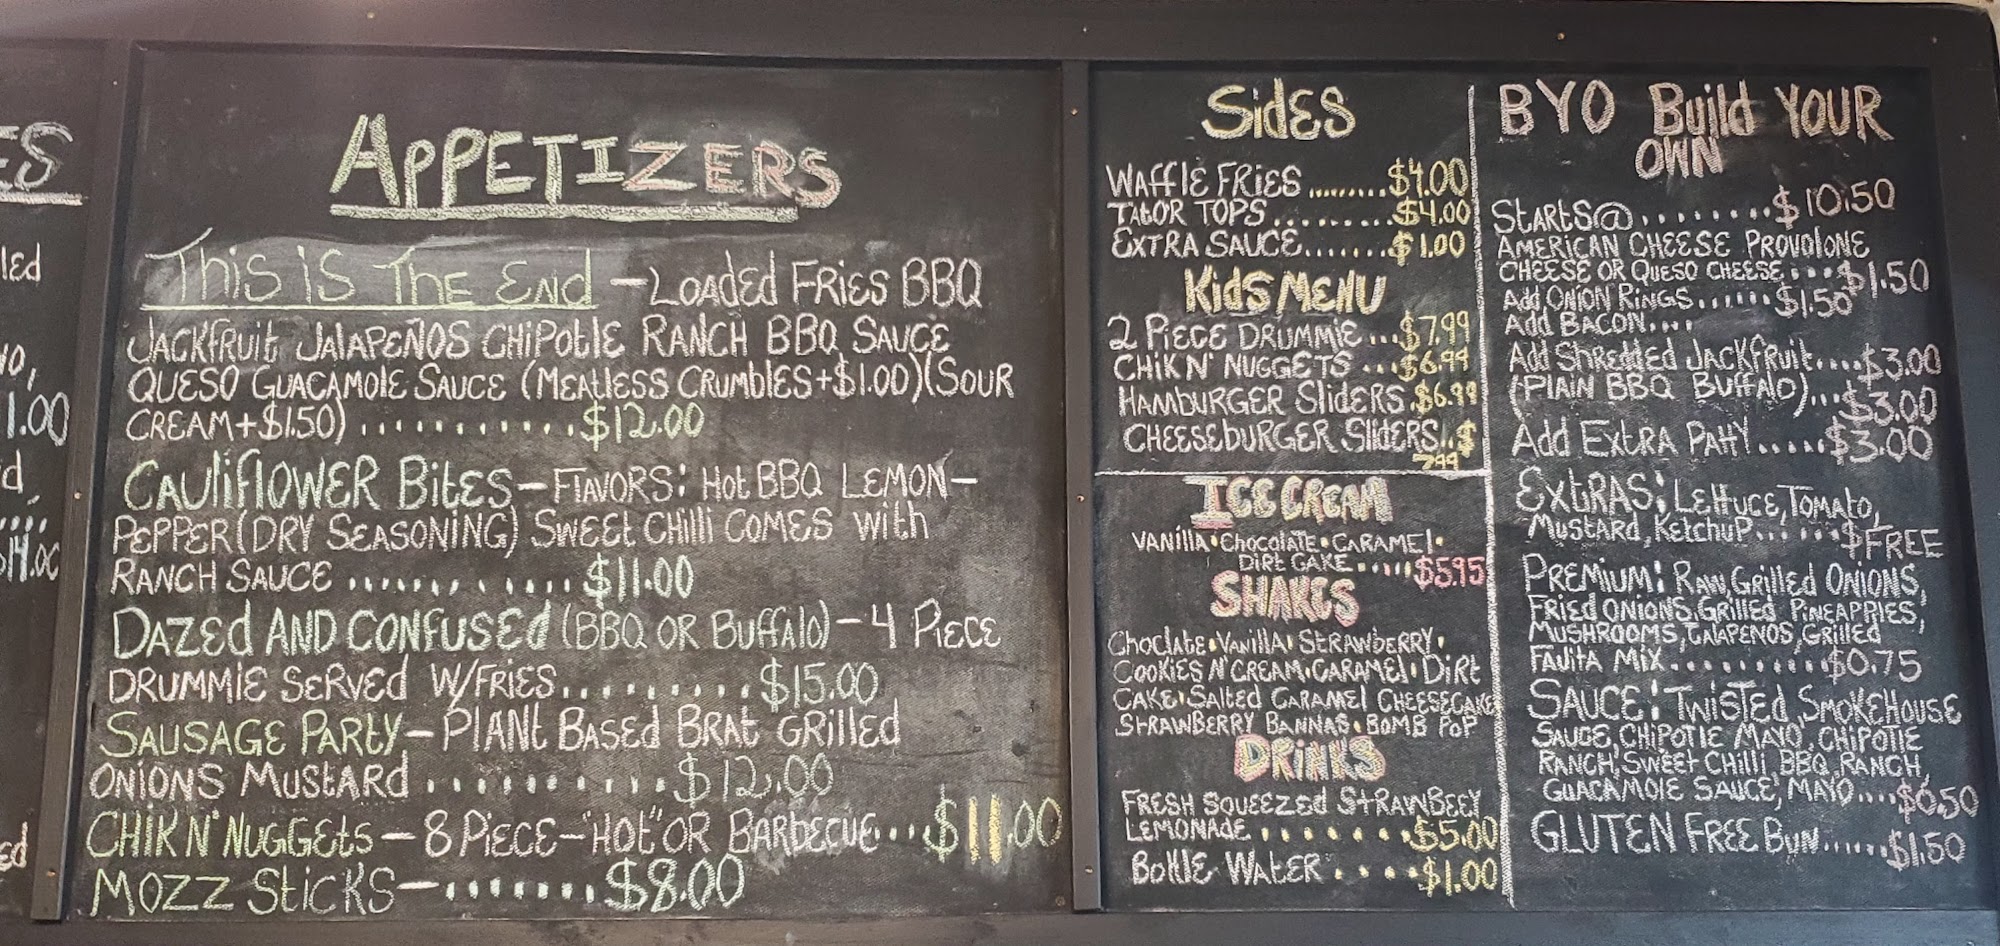 ES
led
1.00
ed
APPETIZERS
This is The End - Loaded Fries BBQ
Jackfruit Jalapeños Chipotle Ranch BBQ Sauce
Queso Guacamole Sauce (Meatless Crumbles+$1.00)(Sour
Cream+$1.50) ............$12.00
Cauliflower Bites - Flavors: Hot BBQ Lemon-
Pepper (Dry Seasoning) Sweet Chilli comes with
Ranch Sauce ............$11.00
Dazed and Confused (BBQ or Buffalo) - 4 Piece
Drummie Served w/Fries..........$15.00
Sausage Party - Plant Based Brat Grilled
Onions Mustard ..........$12.00
Chik N' Nuggets - 8 Piece - "Hot" or Barbecue...$11.00
Mozz Sticks - .......$8.00
Sides
Waffle Fries .........$4.00
Tator Tops..........$4.00
Extra Sauce........$1.00
Kids Menu
2 Piece Drummie...$7.99
Chik N' Nuggets ...$6.99
Hamburger Sliders.$6.99
Cheeseburger Sliders..$
7.99
Ice Cream
Vanilla • Chocolate • Caramel •
Dirt Cake.....$5.95
Shakes
Choclate • Vanilla • Strawberry •
Cookies N' Cream • Caramel • Dirt
Cake • Salted Caramel Cheesecake
Strawberry Bannas • Bomb Pop
Drinks
Fresh Squeezed Strawbeey
Lemonade........$5.00
Bottle Water.....$1.00
BYO Build YOUR
OWN
Starts@.........$10.50
American Cheese Provolone
Cheese or Queso Cheese....$1.50
Add Onion Rings......$1.50
Add Bacon....
Add Shredded Jackfruit....$3.00
(Plain BBQ Buffalo)...$3.00
Add Extra Patty.....$3.00
Extras: Lettuce, Tomato,
Mustard, Ketchup......$FREE
Premium: Raw, Grilled Onions,
Fried Onions, Grilled Pineapples,
Mushrooms, Jalapenos, Grilled
Fajita Mix..........$0.75
Sauce: Twisted, Smokehouse
Sauce, Chipotle Mayo, Chipotle
Ranch, Sweet Chilli, BBQ, Ranch,
Guacamole Sauce, Mayo....$0.50
Gluten Free Bun......$1.50